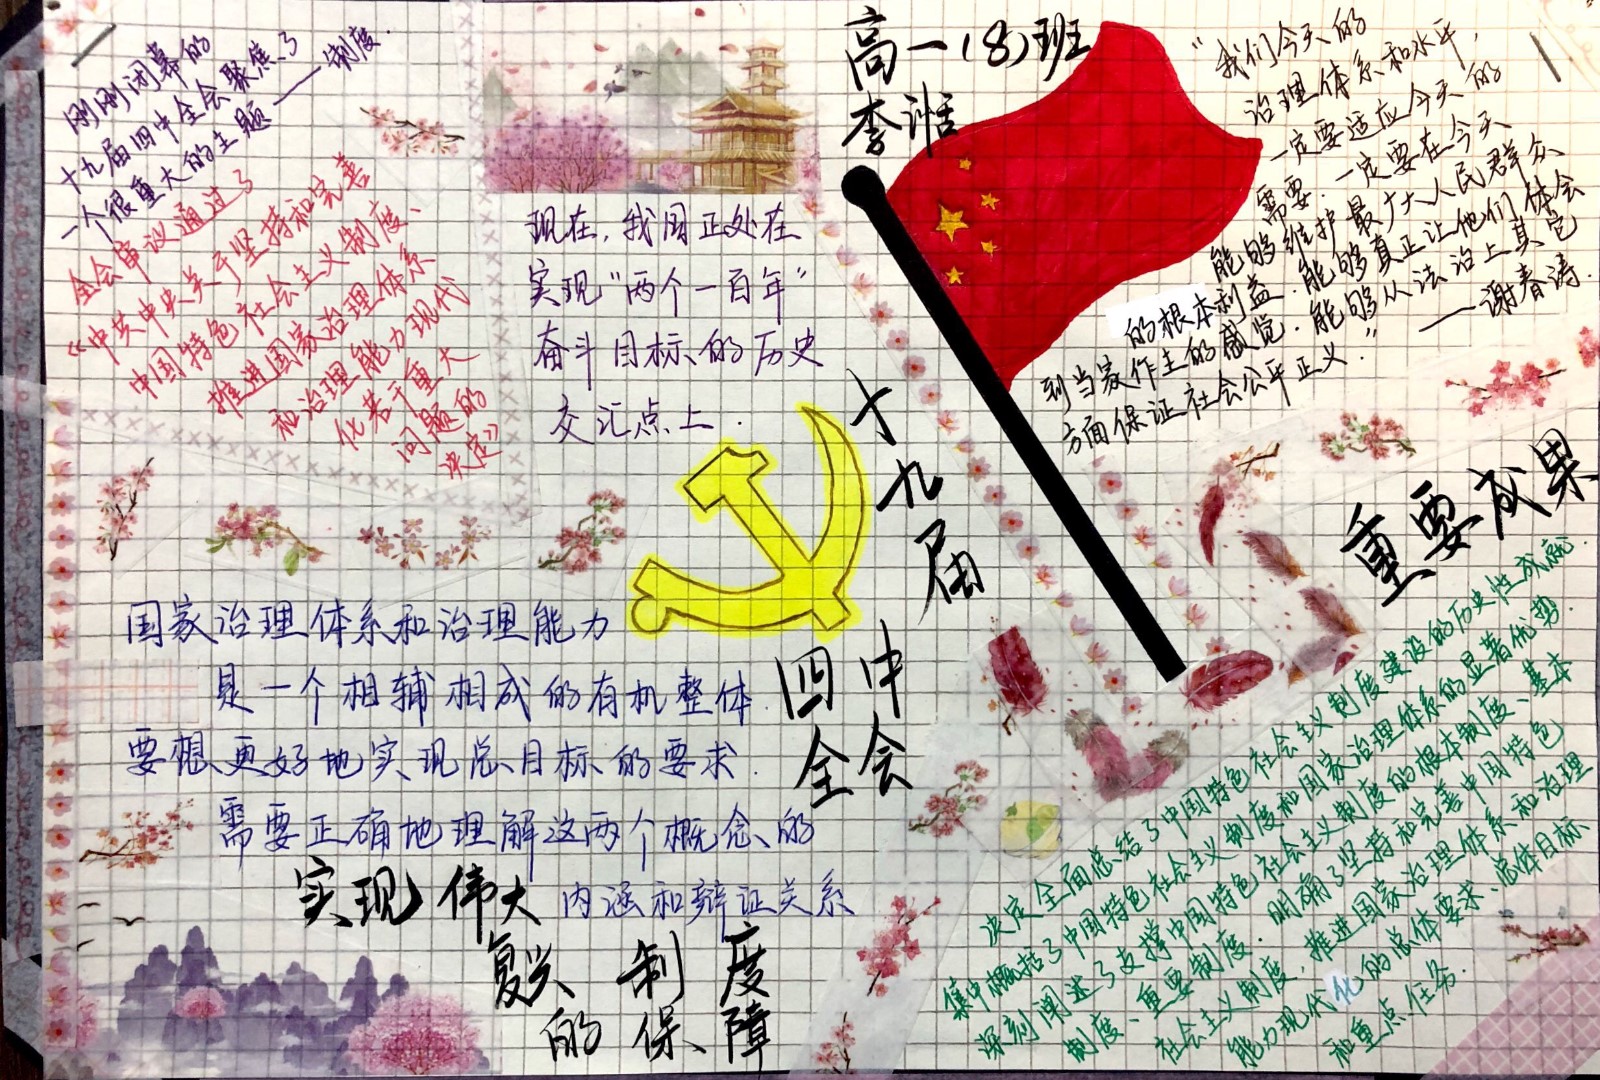 刚刚闭幕的
十九届四中全会聚焦了
一个很重大的主题——制度.
全会审议通过了
《中共中央关于坚持和完善
中国特色社会主义制度、
推进国家治理体系
和治理能力现代
化若干重大
问题的
决定》
现在,我国正处在
实现“两个一百年”
奋斗目标的历史
交汇点上.
高一(8)班
李
“我们今天的
治理体系和水平,
一定要适应今天的
需要.一定要在今天
能够维护最广大人民群众
的根本利益.能够真正让他们体会
到当家作主的感觉.能够从法治上其它
方面保证社会公平正义.”
——谢春涛.
十九届
四中
全会
国家治理体系和治理能力
是一个相辅相成的有机整体.
要想更好地实现总目标的要求.
需要正确地理解这两个概念的
内涵和辩证关系
实现伟大
复兴 制度
的保障
重要成果
决定全面总结了中国特色社会主义制度建设的历史性成就.
集中概括了中国特色社会主义制度和国家治理体系的显著优势.
深刻阐述了支撑中国特色社会主义制度的根本制度、基本
制度、重要制度.明确了坚持和完善中国特色
社会主义制度,推进国家治理体系和治理
能力现代化的总体要求、总体目标
和重点任务.